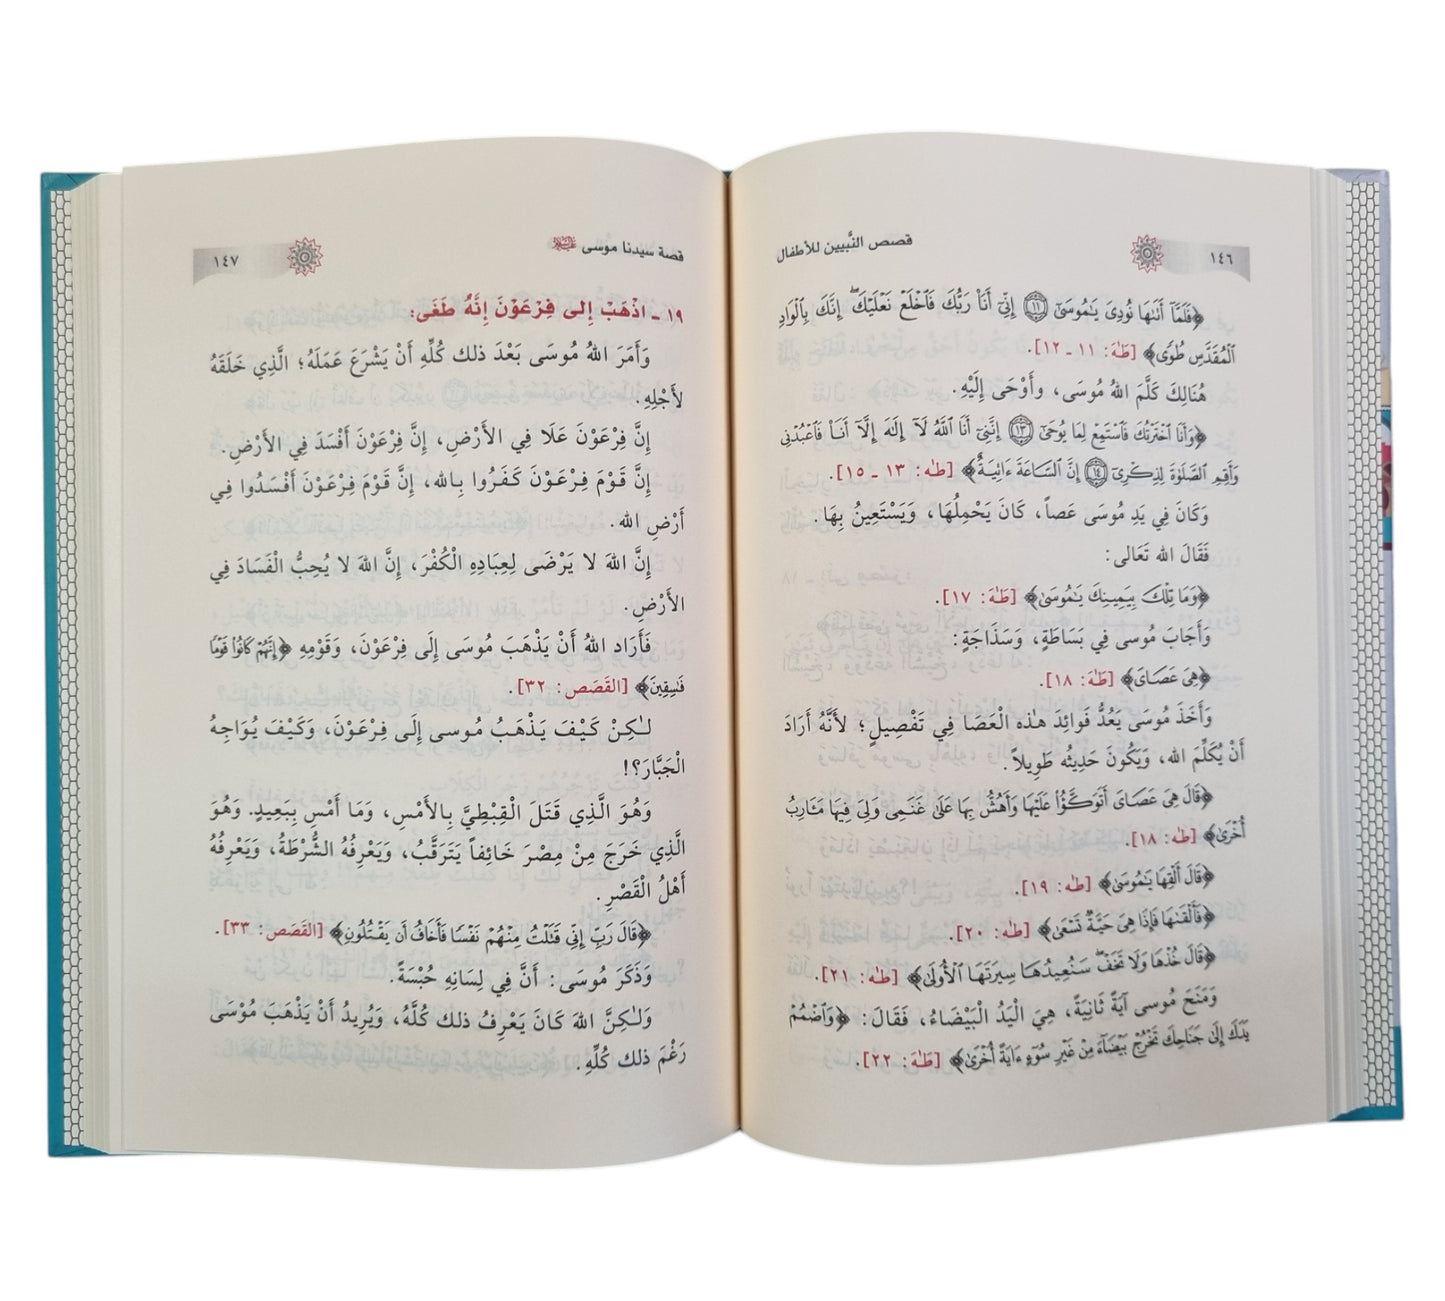 ١٤٦
قصص النَّبيين للأطفال
﴿فَلَمَّآ أَتَىٰهَا نُودِىَ يَٰمُوسَىٰٓ ١١ إِنِّىٓ أَنَا۠ رَبُّكَ فَٱخْلَعْ نَعْلَيْكَ ۖ إِنَّكَ بِٱلْوَادِ
ٱلْمُقَدَّسِ طُوًى﴾ [طٰهٰ: ١١ ـ ١٢].
هُنَالِكَ كَلَّمَ اللهُ مُوسَى، وأَوْحَى إِلَيْهِ.
﴿وَأَنَا ٱخْتَرْتُكَ فَٱسْتَمِعْ لِمَا يُوحَىٰٓ ١٣ إِنَّنِىٓ أَنَا ٱللَّهُ لَآ إِلَٰهَ إِلَّآ أَنَا۠ فَٱعْبُدْنِى
وَأَقِمِ ٱلصَّلَوٰةَ لِذِكْرِىٓ ١٤ إِنَّ ٱلسَّاعَةَ ءَاتِيَةٌ﴾ [طٰهٰ: ١٣ ـ ١٥].
وَكَانَ فِي يَدِ مُوسَى عَصاً، كَانَ يَحْمِلُهَا، وَيَسْتَعِينُ بِهَا.
فَقَالَ الله تَعَالى:
﴿وَمَا تِلْكَ بِيَمِينِكَ يَٰمُوسَىٰ﴾ [طٰهٰ: ١٧].
وَأَجَابَ مُوسى فِي بَسَاطَةٍ، وَسَذَاجَةٍ:
﴿هِىَ عَصَاىَ﴾ [طٰهٰ: ١٨].
وَأَخَذَ مُوسَى يَعُدُّ فَوائِدَ هٰذه الْعَصَا فِي تَفْصِيلٍ؛ لأَنَّهُ أَرَادَ
أَنْ يُكَلِّمَ الله، وَيَكُونَ حَدِيثُه طَوِيلاً.
﴿قَالَ هِىَ عَصَاىَ أَتَوَكَّؤُا۟ عَلَيْهَا وَأَهُشُّ بِهَا عَلَىٰ غَنَمِى وَلِىَ فِيهَا مَـَٔارِبُ
أُخْرَىٰ﴾ [طٰهٰ: ١٨].
﴿قَالَ أَلْقِهَا يَٰمُوسَىٰ﴾ [طٰهٰ: ١٩].
﴿فَأَلْقَىٰهَا فَإِذَا هِىَ حَيَّةٌ تَسْعَىٰ﴾ [طٰهٰ: ٢٠].
﴿قَالَ خُذْهَا وَلَا تَخَفْ ۖ سَنُعِيدُهَا سِيرَتَهَا ٱلْأُولَىٰ﴾ [طٰهٰ: ٢١].
وَمَنَحَ مُوسى آيَةً ثَانِيَةً، هِيَ الْيَدُ الْبَيْضَاءُ، فَقَالَ: ﴿وَٱضْمُمْ
يَدَكَ إِلَىٰ جَنَاحِكَ تَخْرُجْ بَيْضَآءَ مِنْ غَيْرِ سُوٓءٍ ءَايَةً أُخْرَىٰ﴾ [طٰهٰ: ٢٢].
قصة سيدنا موسى عليه السلام
١٤٧
١٩ ـ اذْهَبْ إِلى فِرْعَوْنَ إِنَّهُ طَغَى:
وَأَمَرَ اللهُ مُوسَى بَعْدَ ذلك كُلِّهِ أَنْ يَشْرَعَ عَمَلَهُ؛ الَّذِي خَلَقَهُ
لأَجْلِهِ.
إِنَّ فِرْعَوْنَ عَلَا فِي الأَرْضِ، إِنَّ فِرْعَوْنَ أَفْسَدَ فِي الأَرْضِ.
إِنَّ قَوْمَ فِرْعَوْنَ كَفَرُوا بِالله، إِنَّ قَوْمَ فِرْعَوْنَ أَفْسَدُوا فِي
أَرْضِ الله.
إِنَّ اللهَ لا يَرْضَى لِعِبَادِهِ الْكُفْرَ، إِنَّ اللهَ لا يُحِبُّ الْفَسَادَ فِي
الأَرْضِ.
فَأَرَاد اللهُ أَنْ يَذْهَبَ مُوسَى إِلَى فِرْعَوْنَ، وَقَوْمِهِ ﴿إِنَّهُمْ كَانُوا۟ قَوْمًا
فَٰسِقِينَ﴾ [القَصَص: ٣٢].
لٰكِنْ كَيْفَ يَذْهَبُ مُوسى إِلَى فِرْعَوْنَ، وَكَيْفَ يُوَاجِهُ
الْجَبَّارَ؟!
وَهُوَ الَّذِي قَتَلَ الْقِبْطِيَّ بِالأَمْسِ، وَمَا أَمْسِ بِبَعِيدٍ. وَهُوَ
الَّذِي خَرَجَ مِنْ مِصْرَ خَائِفاً يَتَرَقَّبُ، وَيَعْرِفُهُ الشُّرْطَةُ، وَيَعْرِفُهُ
أَهْلُ الْقَصْرِ.
﴿قَالَ رَبِّ إِنِّى قَتَلْتُ مِنْهُمْ نَفْسًا فَأَخَافُ أَن يَقْتُلُونِ﴾ [القَصَص: ٣٣].
وَذَكَرَ مُوسَى: أَنَّ فِي لِسَانِهِ حُبْسَةً.
وَلٰكِنَّ اللهَ كَانَ يَعْرِفُ ذلك كُلَّهُ، وَيُرِيدُ أَنْ يَذْهَبَ مُوْسَى
رَغْمَ ذلك كُلِّهِ.